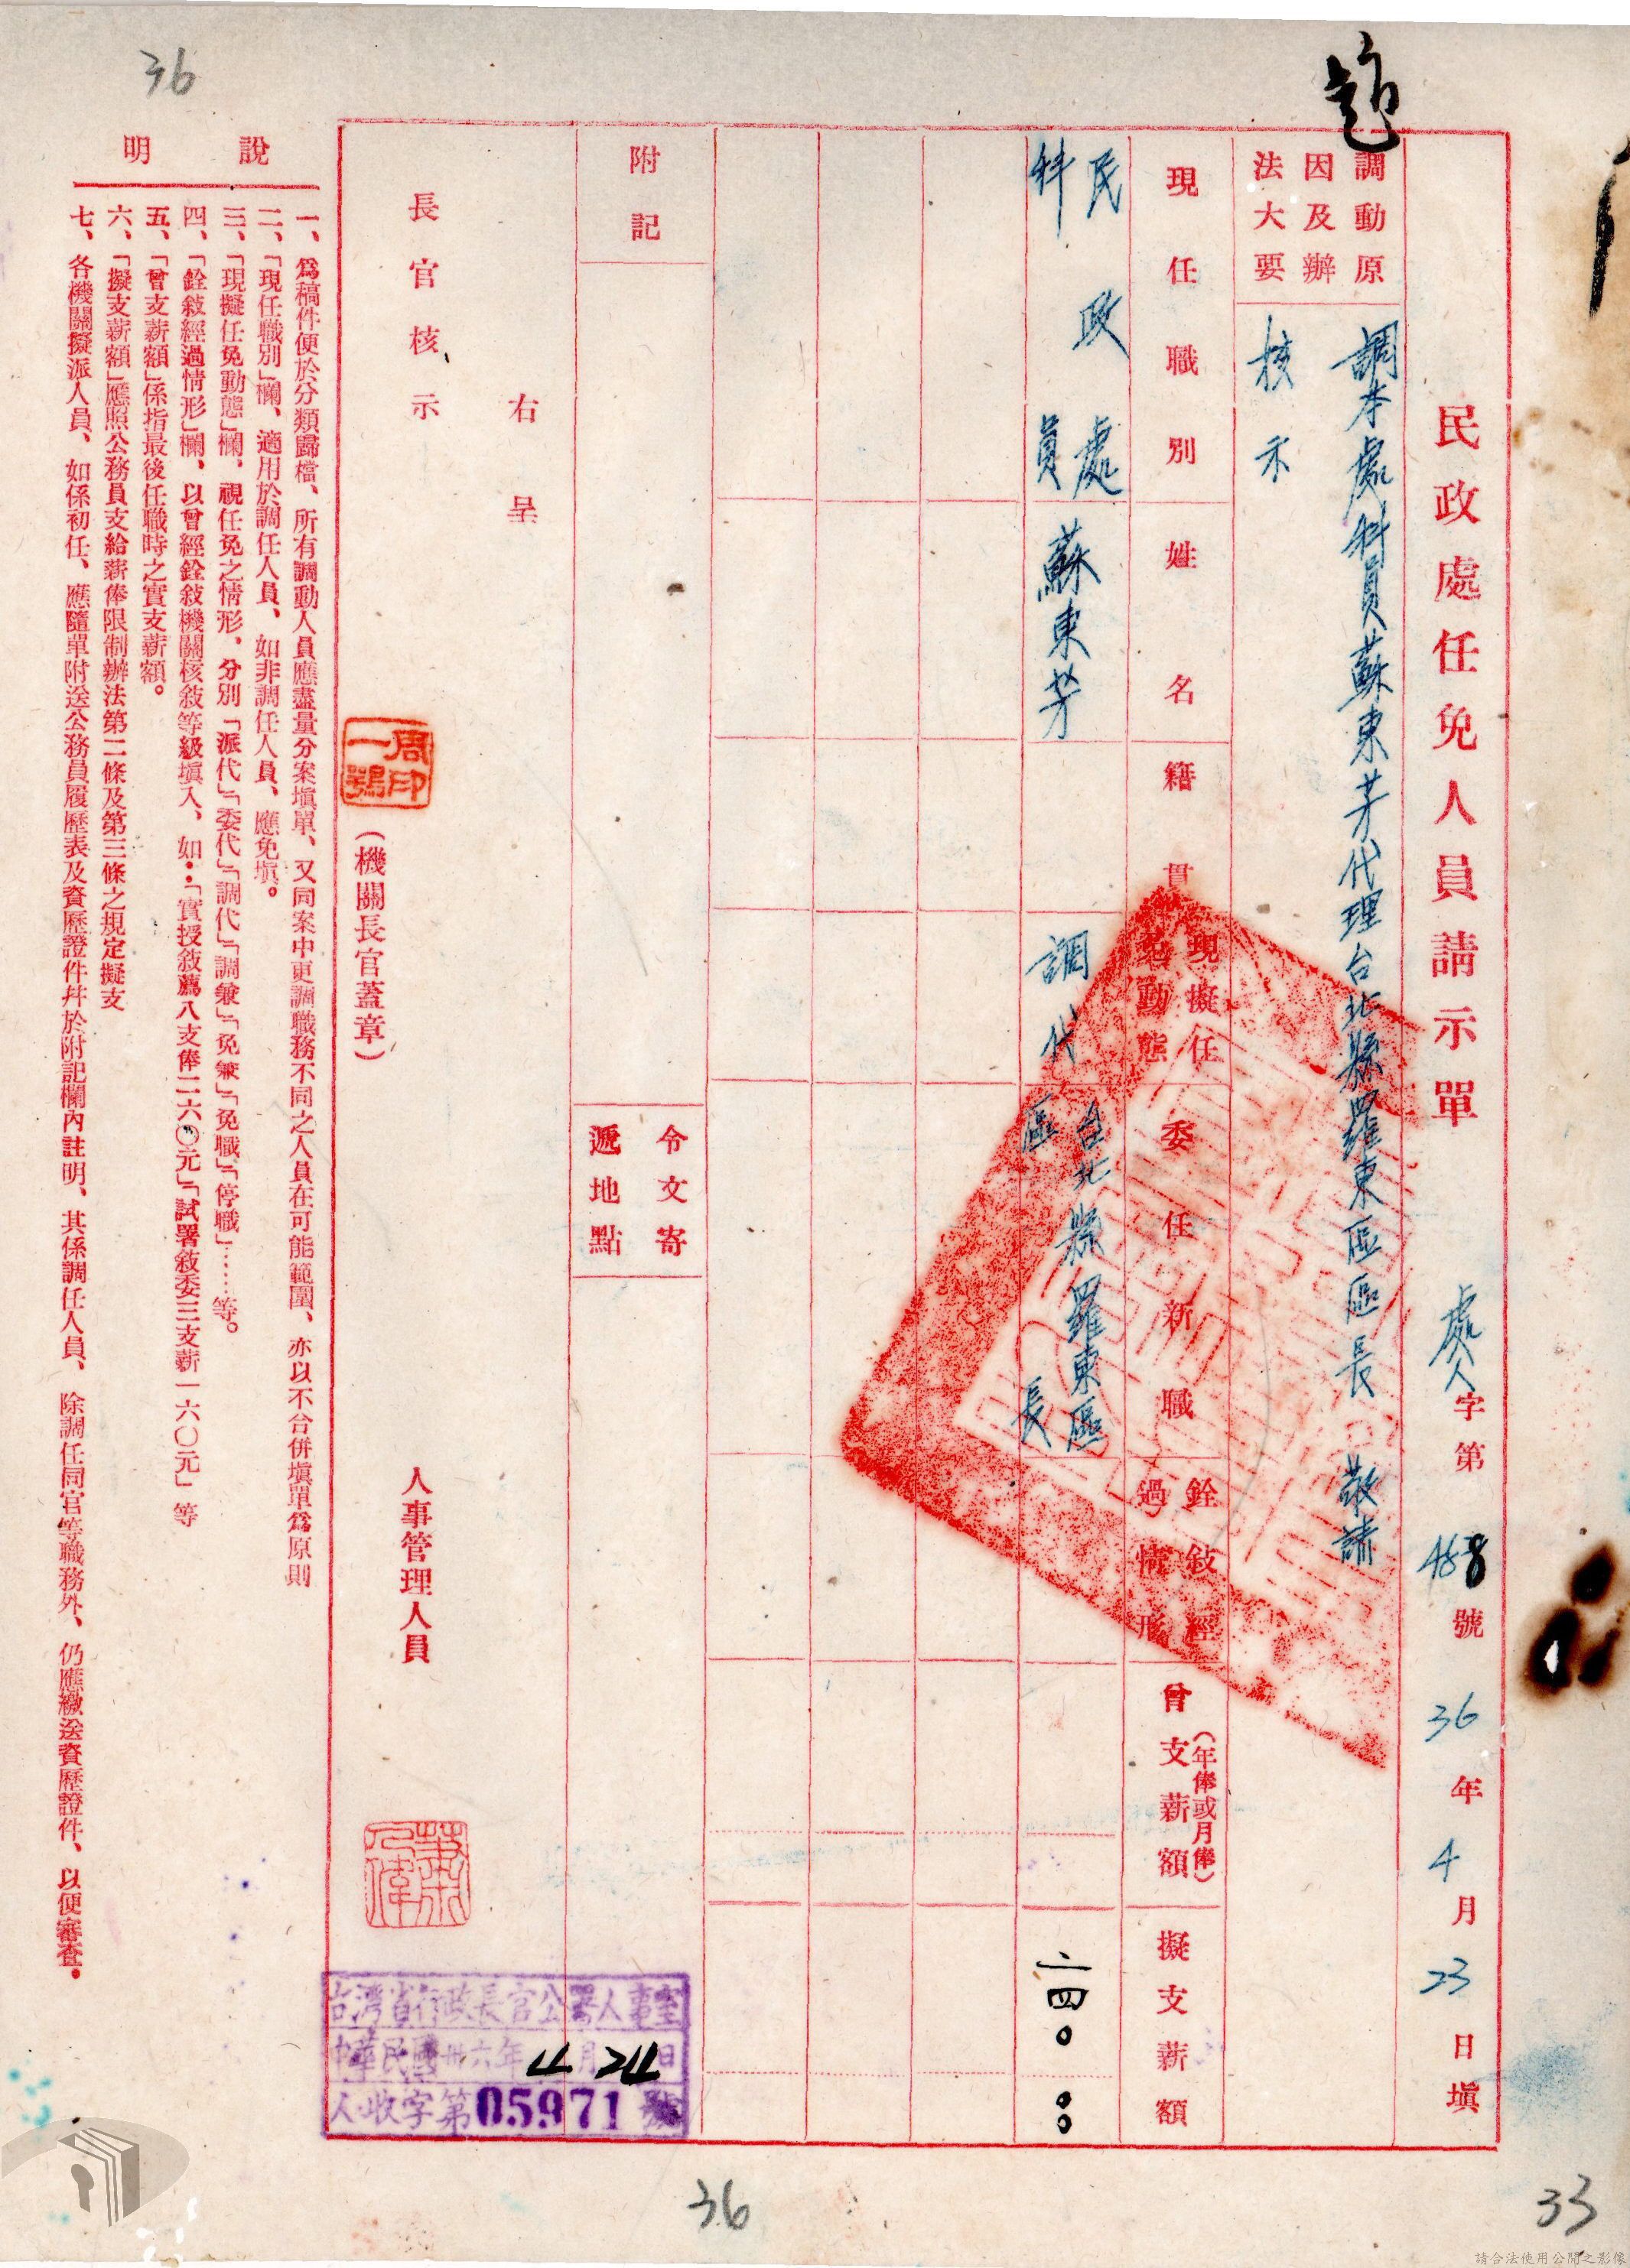 36
民政處任免人員請示單 處人字第488號 36年4月23日填
調動原因及辦法大要
調本處科員蘇東芳代理台北縣羅東區區長 敬請
核示
現任職別
姓名
籍貫
現擬任免動態
委任新職
銓敍經過情形
曾支薪額（年俸或月俸）
擬支薪額
民政處科員
蘇東芳
調代
台北縣羅東區區長
二四〇〇〇
附記
令文寄遞地點
右呈
長官核示
周一鶚印
（機關長官蓋章）
人事管理人員
蕭
偉
台灣省行政長官公署人事室
中華民國卅六年4月24日
人收字第05971號
說明
一、爲稿件便於分類歸檔、所有調動人員應盡量分案塡單、又同案中更調職務不同之人員在可能範圍、亦以不合併塡單爲原則
二、「現任職別」欄、適用於調任人員、如非調任人員、應免塡。
三、「現擬任免動態」欄、視任免之情形、分別「派代」「委代」「調代」「調兼」「免兼」「免職」「停職」……等。
四、「銓敍經過情形」欄、以曾經銓敍機關核敍等級塡入、如：「實授敍薦八支俸二六〇元」「試署敍委三支薪一六〇元」等
五、「曾支薪額」係指最後任職時之實支薪額。
六、「擬支薪額」應照公務員支給薪俸限制辦法第二條及第三條之規定擬支
七、各機關擬派人員、如係初任、應隨單附送公務員履歷表及資歷證件幷於附記欄內註明、其係調任人員、除調任同官等職務外、仍應繳送資歷證件、以便審查。
36
33
請合法使用公開之影像